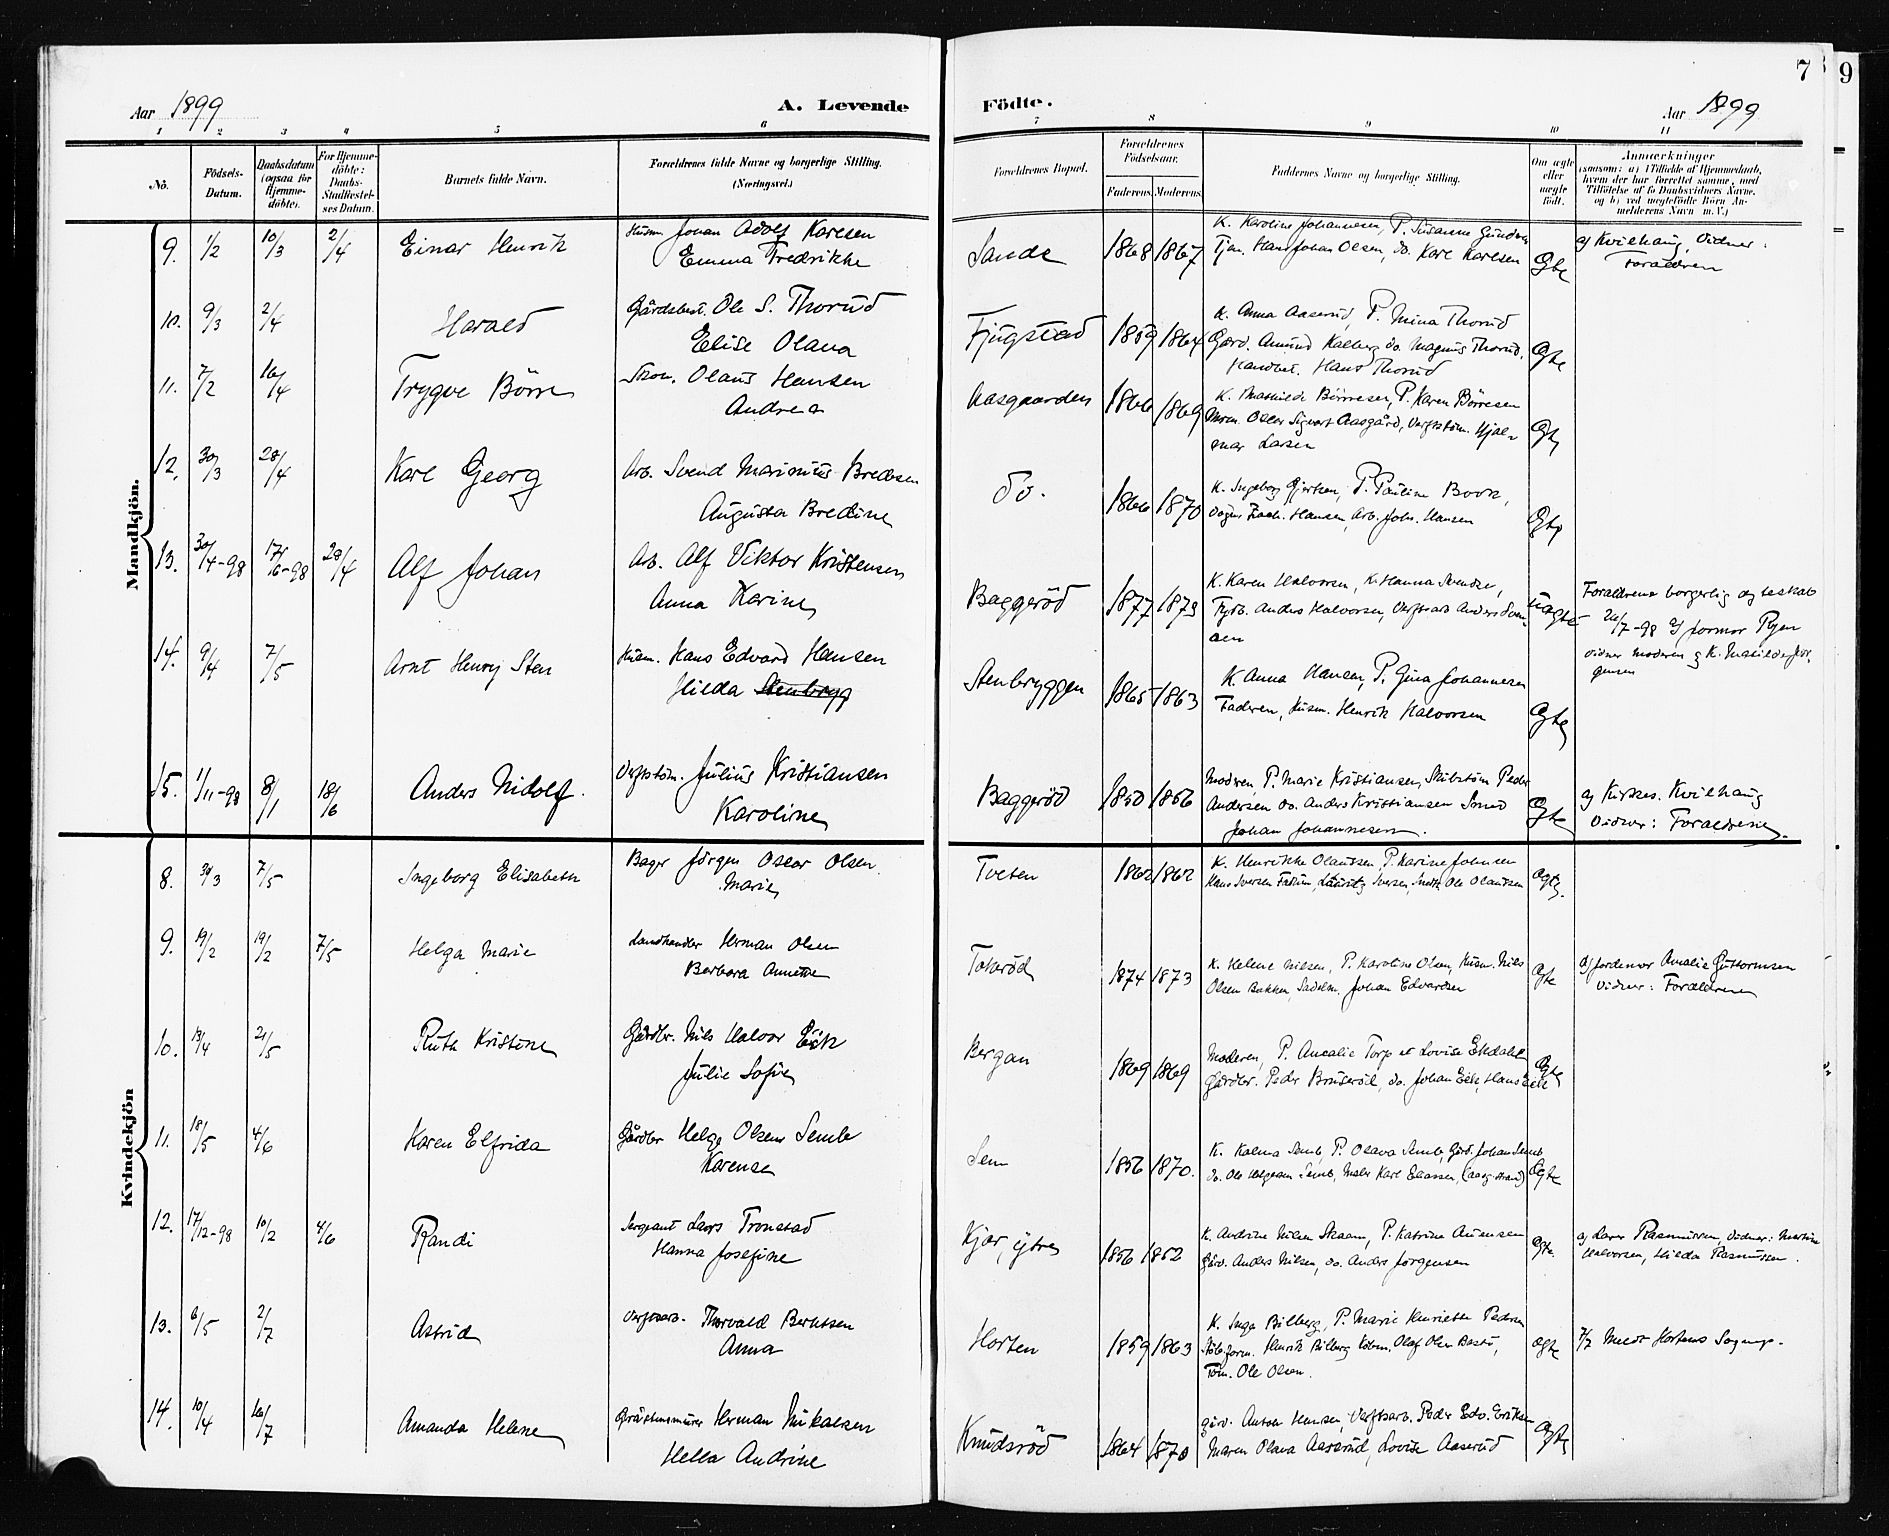 7
9
Aar 1899
A. Levende
Födte.
Aar 1899
1 2 3 4 5 6 7 8 9 10 11
No.
Födsels-Datum.
Daabsdatum (ogsaa for Hjemmedöbte).
For Hjemmedöbte: Daabs-Stadfæstelses Datum.
Barnets fulde Navn.
Forældrenes fulde Navne og borgerlige Stilling. (Næringsvei.)
Forældrenes Bopæl.
Forældrenes Födselsaar.
Faderens. Moderens.
Faddernes Navne og borgerlige Stilling.
Om ægte eller uægte födt.
Anmærkninger
(saasom: a) i Tilfælde af Hjemmedaab, hvem der har forrettet samme, med Tilföielse af to Daabsvidners Navne, og b) ved uægtefödte Börn Anmelderens Navn m. V.)
Mandkjön.
9. 1/2 10/3 2/4 Einar Henrik Husm. Johan Adolf Karlsen
Emma Fredrikke
Sande 1868 1867 K. Karoline Johannesen, P. Susanne Gundersen
Tjen. Hans Johan Olsen, do. Karl Karlsen Ægte
af Kvilhaug, Vidner:
Forældren
10. 9/3 2/4 Harald Gårdsbest. Ole S. Thorud
Elise Olava
Fjugstad 1859 1864 K. Anna Aaserud, P. Mina Thorud
Gårdb. Amund Kalberg, do. Magnus Thorud,
Handbet. Hans Thorud Ægte
11. 7/2 16/4 Trygve Börre Skom. Olaus Hansen
Andrea
Aasgaarden 1866 1869 K. Mathilde Börresen, P. Karen Börresen
Mrm. Oscar Sigvart Aasgård, Verftstøm. Hjal-
mar Larsen Ægte
12. 30/3 28/4 Karl Georg Arb. Svend Marinius Bredesen
Augusta Bredine
Do. 1866 1870 K. Ingeborg Gjertsen, P. Pauline Book,
Hansen, Arb. Joh. Hansen Ægte
13. 30/4-98 17/6-98 28/4 Alf Johan Arb. Alf Viktor Kristensen
Anna Karine
Baggeröd 1877 1873 K. Karen Halvorsen, K. Hanna Svendsen,
Fyrb. Anders Halvorsen, Verftsarb Anders Sven-
sen uægte
Forældrene borgerlig ægteskab
26/7-98 af jormor Ryen
Vidner moderen og K. Matilde Jör-
gensen
14. 9/4 7/5 Arnt Henry Sten Husm. Hans Edvard Hansen
Hilda Stenbryg
Stenbryggen 1865 1863 K. Anna Hansen, P. Gina Johannesen
Faderen, Husm. Henrik Halvorsen Ægte
15. 1/11-98 8/1 18/6 Anders Nidolf. Verftstøm. Julius Kristiansen
Karoline
Baggeröd 1850 1856 Moderen, P. Marie Kristiansen, Skibstøm Peder
Andersen do. Anders Kristiansen Smed
Johan Johannesen. Ægte
af Kirkes. Kvilhaug
Vidner: Forældrene.
Kvindekjön
8. 30/3 7/5 Ingeborg Elisabeth Bager Jörgen Oscar Olsen
Marie
Tveten 1862 1862 K. Henrikke Olaussen, P. Karine Johnsen
Hans Iversen Faksum, Lauritz Iversen, Smed Ole Olaussen Ægte.
9. 19/2 19/2 7/5 Helga Marie Landhandler Herman Olsen
Barbara Annette
Tokeröd 1874 1873 K. Helene Nilsen, P. Karoline Olsen, Husm. Nils
Olsen Bakken, Sadelm. Johan Edvardsen Ægte
af Jordemor Amalie Guttormsen
Vidner: Forældrene
10. 13/4 21/5 Ruth Kristine Gårdbr. Nils Halvor Eik
Julie Sofie
Bergan 1869 1869 Moderen, P. Amalie Torp et Lovise Ekdahl
Gårdbr. Peder Bruseröd, do. Johan Eik, Hans Eik Ægte
11. 18/5 4/6 Karen Elfrida Gårdbr Helge Olsen Semb
Karense
Sem 1856 1870. K. Kalma Semb, P. Olava Semb, Gård. Johan Semb
do. Ole Helgesen Semb, Maler Karl Eliassen, (Aasg.strand) Ægte
12. 17/12-98 10/2 4/6 Randi Sergeant Lars Tronstad
Hanna Josefine
Kjær, ytre 1856 1852 K. Andrine Nilsen Skaane, P. Katrine Auensen
Gårdb. Anders Nilsen, do. Anders Jörgensen Ægte.
af Laver Rasmussen, Vidner: Martine
Halvorsen, Hilda Rasmussen.
13. 6/5 2/7 Astrid Verftsarb. Thorvald Berntsen
Anna
Horten 1859 1863 K. Inga Bilberg, P. Marie Henriette Pedersen
Stöb.form. Henrik Bilberg, Köbm. Olaf Olsen Bastö,
Töm. Ole Olsen. ægte
7/7 Meldt Hortens Sognepr.
14. 10/4 16/7 Amanda Helene Gråstensmurer Herman Mikalsen
Hella Andrine
Knudsröd 1864 1870 Gårdb. Anton Hansen, Verftsarb. Peder Edv. Eriksen
Maren Olava Aaserud, Lovise Aaserud Ægte